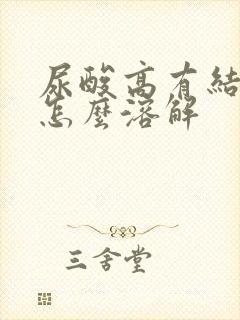 尿酸高有結
怎麼溶解
三舍堂